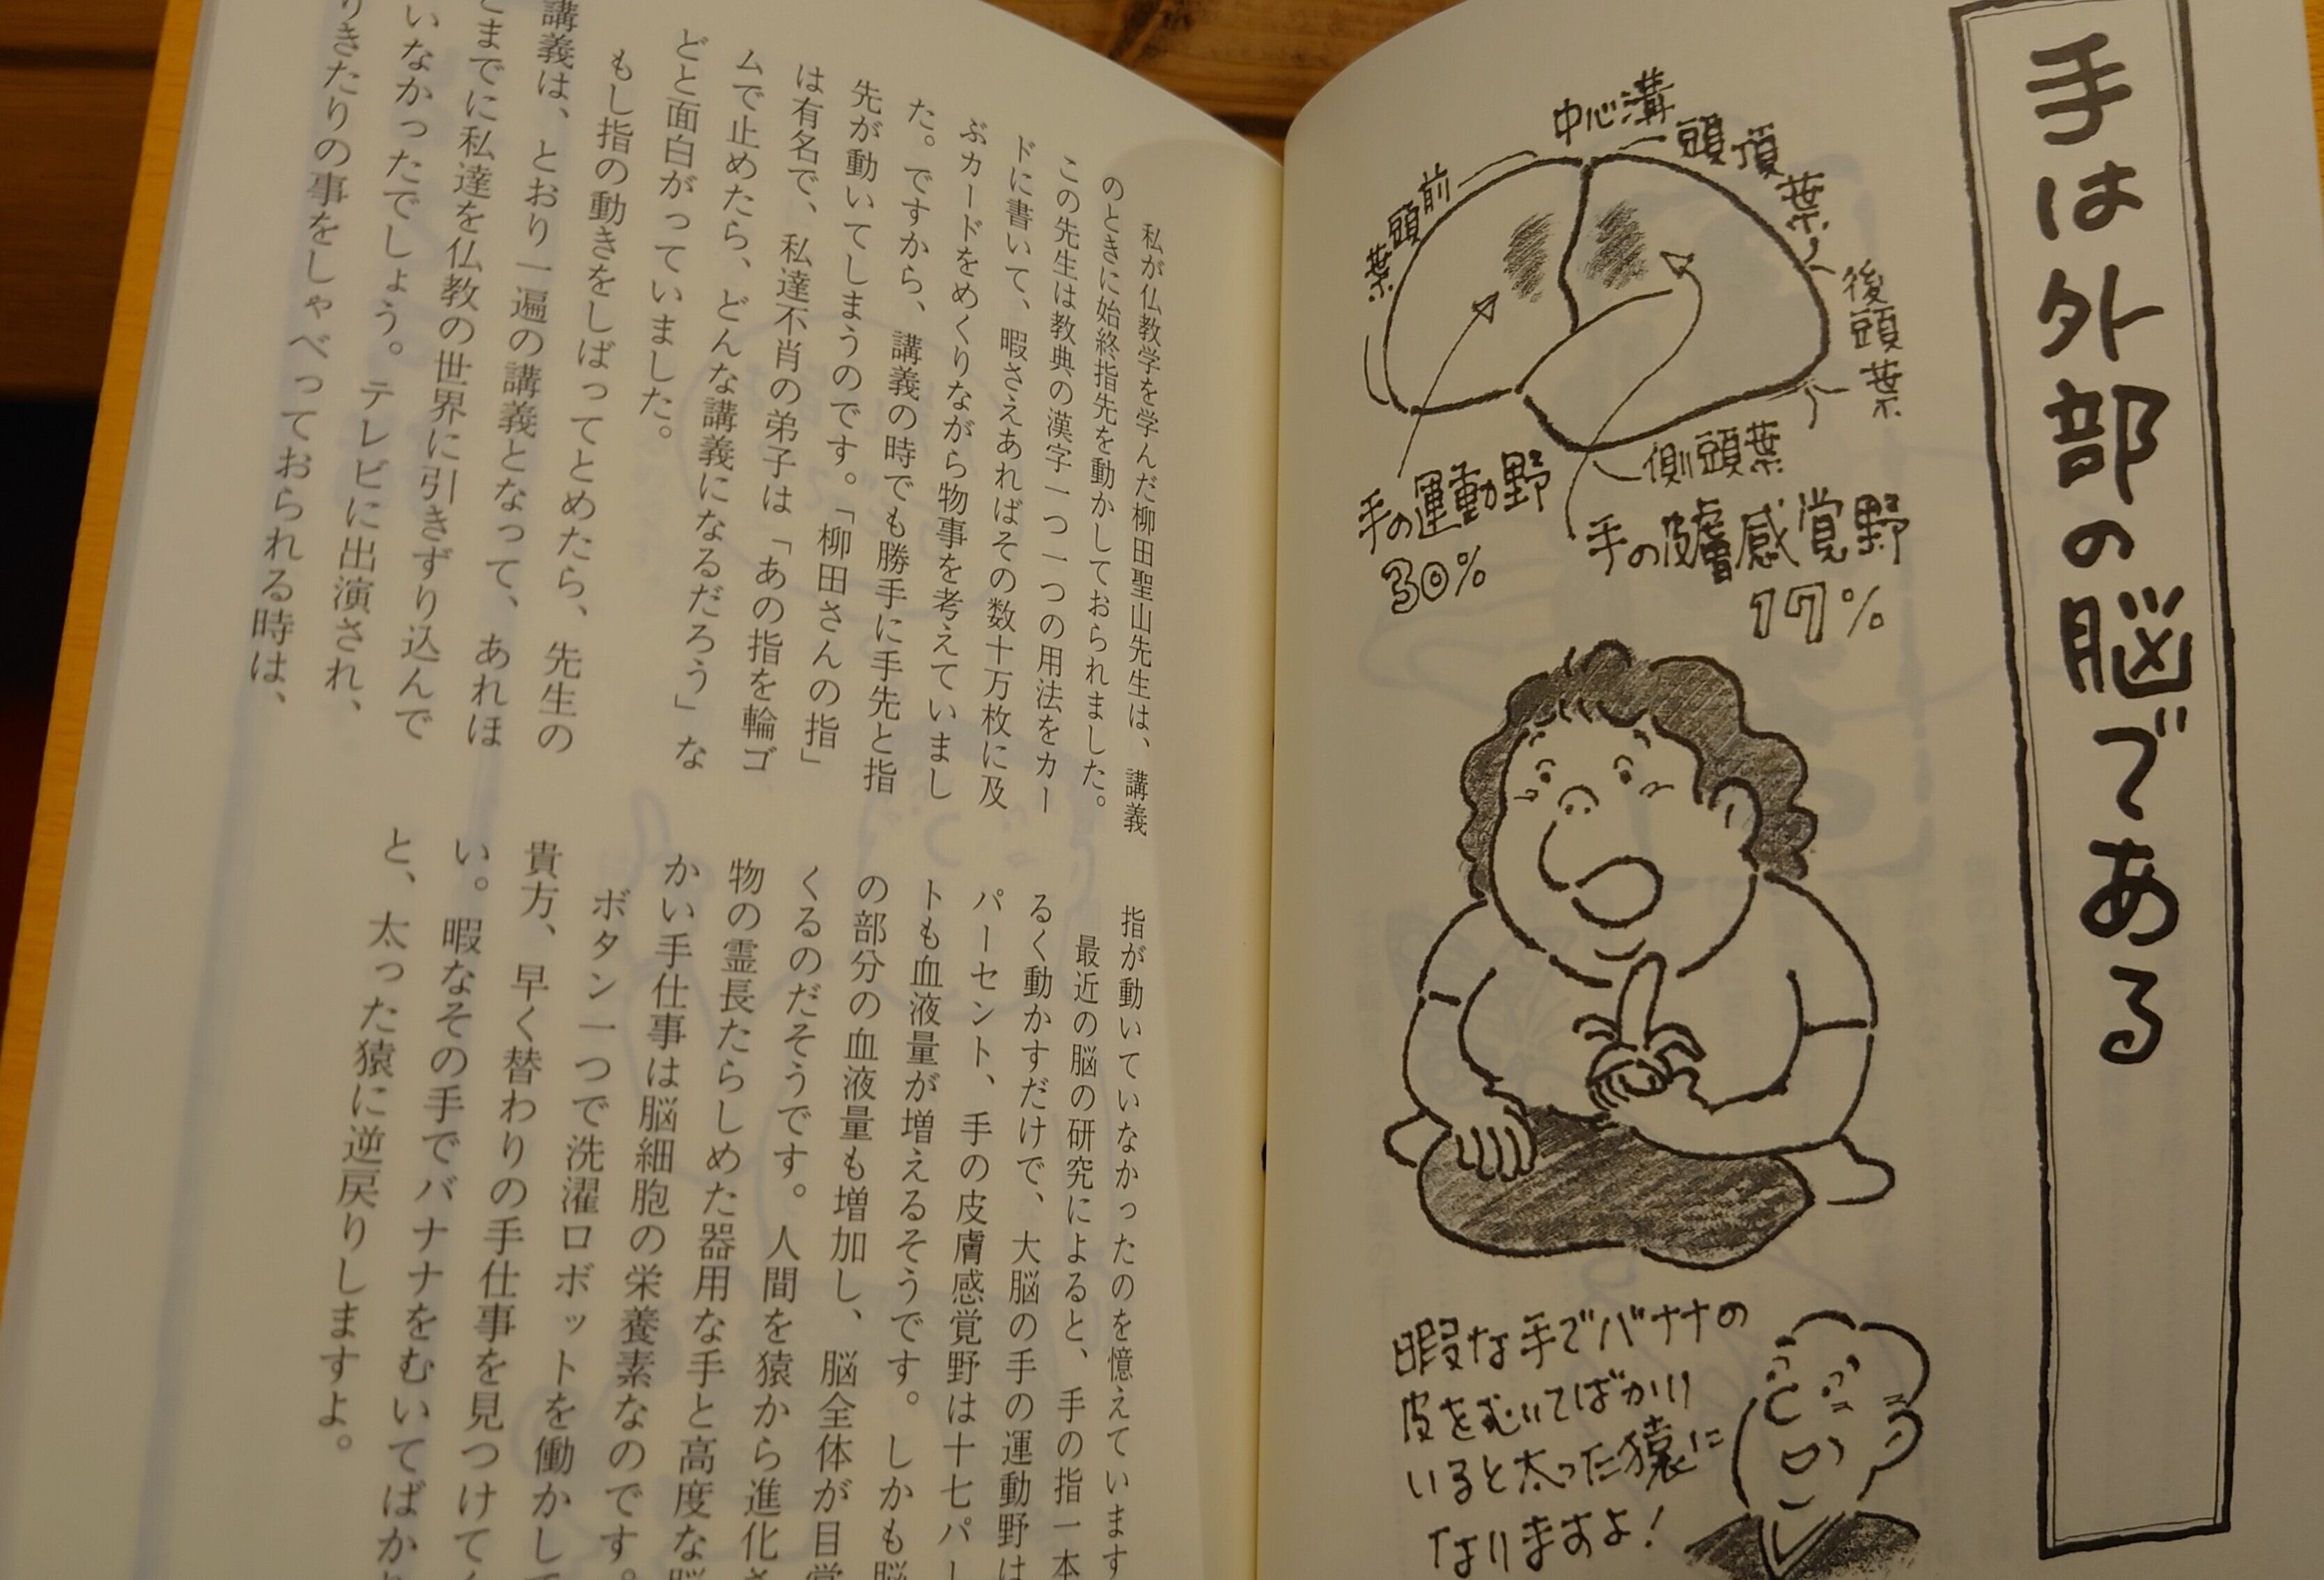 手は外部の脳である
中心溝
頭頂葉
前頭葉
後頭葉
側頭葉
手の運動野
30%
手の皮膚感覚野
17%
暇な手でバナナの
皮をむいてばかり
いると太った猿に
なりますよ!
私が仏教学を学んだ柳田聖山先生は、講義
のときに始終指先を動かしておられました。
この先生は教典の漢字一つ一つの用法をカー
ドに書いて、暇さえあればその数十万枚に及
ぶカードをめくりながら物事を考えていまし
た。ですから、講義の時でも勝手に手先と指
先が動いてしまうのです。「柳田さんの指」
は有名で、私達不肖の弟子は「あの指を輪ゴ
ムで止めたら、どんな講義になるだろう」な
どと面白がっていました。
もし指の動きをしばってとめたら、先生の
講義は、とおり一遍の講義となって、あれほ
どまでに私達を仏教の世界に引きずり込んで
いなかったでしょう。テレビに出演され、
りきたりの事をしゃべっておられる時は、
指が動いていなかったのを憶えています
最近の脳の研究によると、手の指一本
るく動かすだけで、大脳の手の運動野は
パーセント、手の皮膚感覚野は十七パー
トも血液量が増えるそうです。しかも
の部分の血液量も増加し、脳全体が目覚
くるのだそうです。人間を猿から進化さ
物の霊長たらしめた器用な手と高度な
かい手仕事は脳細胞の栄養素なのです。
ボタン一つで洗濯ロボットを働かして
貴方、早く替わりの手仕事を見つけて
い。暇なその手でバナナをむいてばか
と、太った猿に逆戻りしますよ。